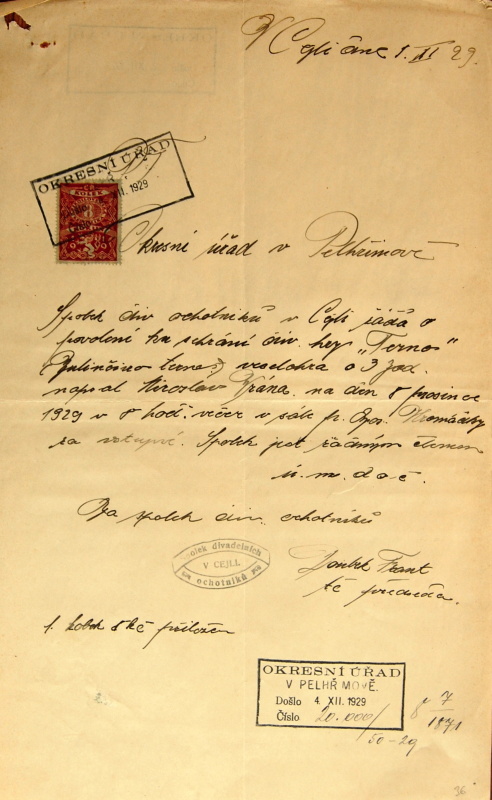 V Cejli dne 1. XII 29.
OKRESNÍ ÚŘAD
XII. 1929
KOLEK
Okresní úřad v Pelhřimově
Spolek div ochotníků v Cejli žádá o
povolení ku sehrání div. hry „Trnos"
veselohra o 3 jed.
napsal Miroslav Vrána. na den 8 prosince
1929 v 8 hod. večer v sále p.
za vstupné. Spolek jest řádným členem
ú. m. d. o. č.
Za spolek div. ochotníků
Spolek divadelních
V CEJLI.
ochotníků
Frant
tč předseda.
1. kolek 5 Kč přiložen
OKRESNÍ ÚŘAD
V PELHŘIMOVĚ.
Došlo 4. XII. 1929
Číslo 20.000/
8 7/1871
50-29
36